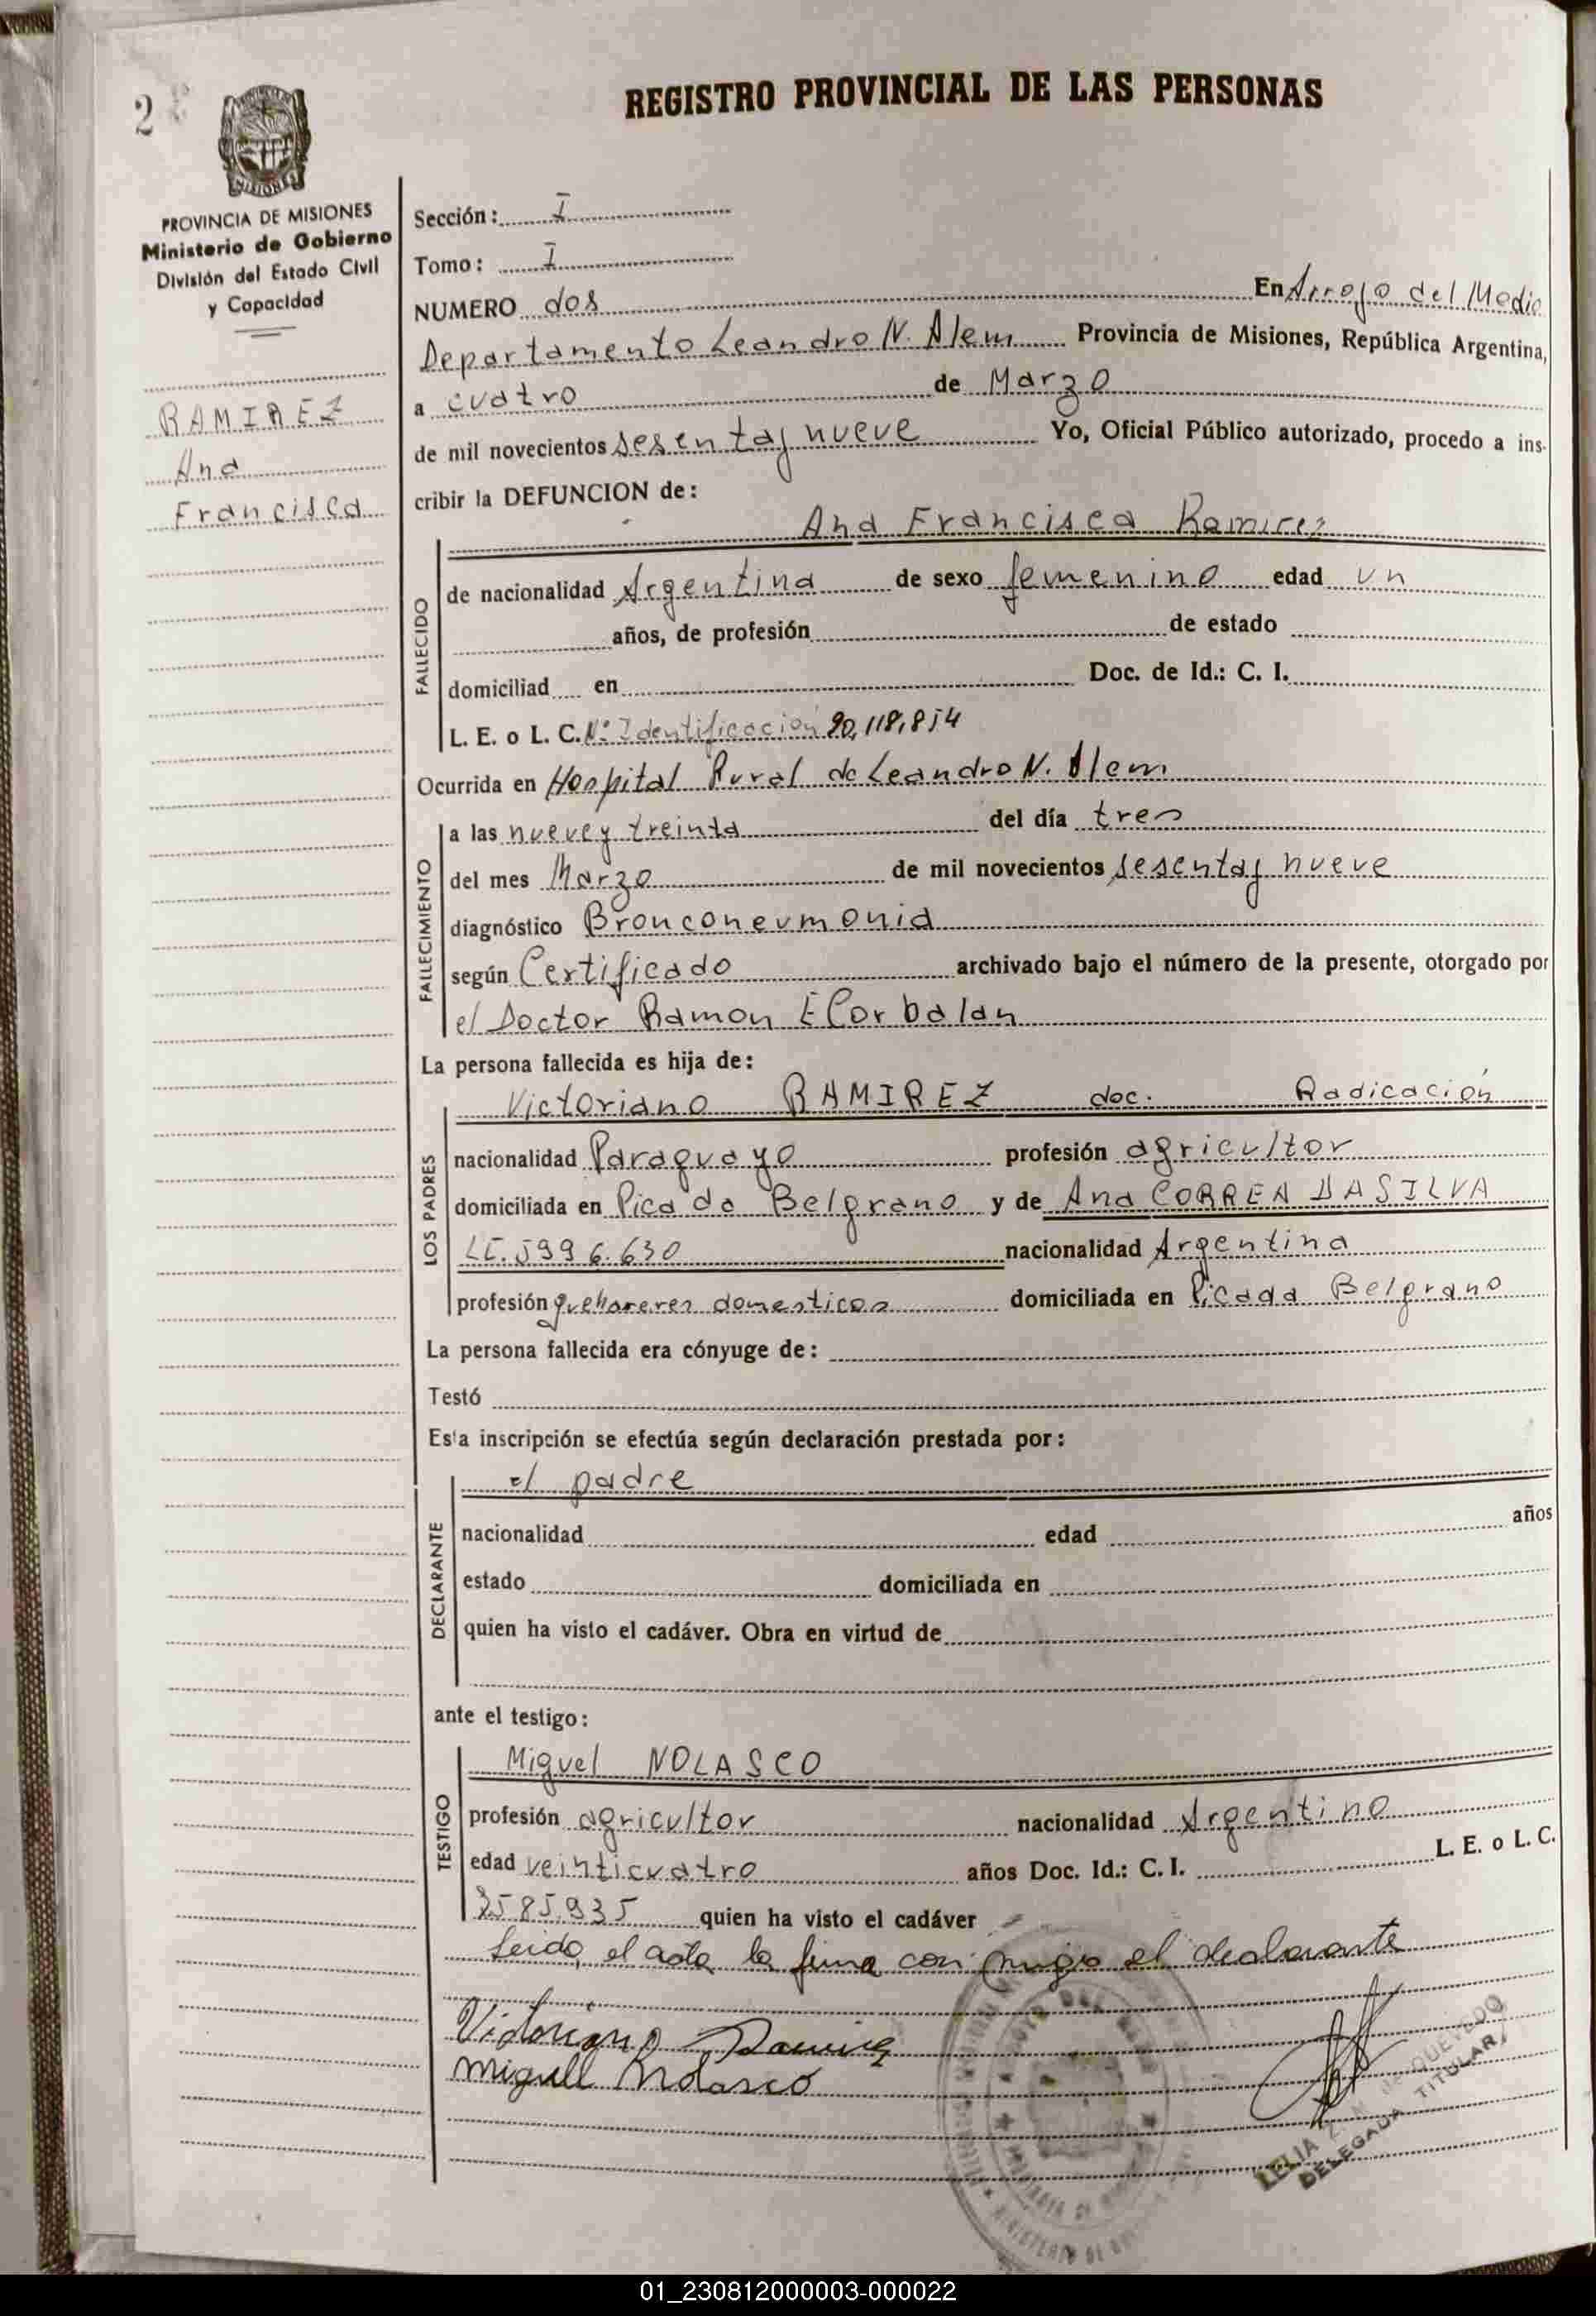 2
REGISTRO PROVINCIAL DE LAS PERSONAS
PROVINCIA DE MISIONES
Ministerio de Gobierno
División del Estado Civil
y Capacidad
RAMIREZ
Ana
Francisca
Sección: I
Tomo: I
NUMERO dos En Arroyo del Medio
Departamento Leandro N. Alem Provincia de Misiones, República Argentina,
a cuatro de Marzo
de mil novecientos sesentay nueve Yo, Oficial Público autorizado, procedo a ins-
cribir la DEFUNCION de:
Ana Francisca Ramirez
FALLECIDO
de nacionalidad Argentina de sexo femenino edad un
años, de profesión de estado
domiciliad en Doc. de Id.: C. I.
L. E. o L. C. Nº Identificación 90,118,854
Ocurrida en Hospital Rural de Leandro N. Alem
FALLECIMIENTO
a las nueve y treinta del día tres
del mes Marzo de mil novecientos sesentay nueve
diagnóstico Bronconeumonia
según Certificado archivado bajo el número de la presente, otorgado por
el Doctor Ramon E Corbalan
La persona fallecida es hija de:
LOS PADRES
Victoriano RAMIREZ doc. Radicación
nacionalidad Paraguayo profesión agricultor
domiciliada en Picada Belgrano y de Ana CORREA DASILVA
LE. 5996.630 nacionalidad Argentina
profesión quehaceres domesticos domiciliada en Picada Belgrano
La persona fallecida era cónyuge de:
Testó
Esta inscripción se efectúa según declaración prestada por:
DECLARANTE
el padre
nacionalidad edad años
estado domiciliada en
quien ha visto el cadáver. Obra en virtud de
ante el testigo:
TESTIGO
Miguel NOLASCO
profesión agricultor nacionalidad Argentino
edad veinticuatro años Doc. Id.: C. I. L. E. o L. C.
8585.935 quien ha visto el cadáver
Leido, el acta la firma con migo el declarante
Victoriano Ramirez
Miguel Nolasco
LELIA QUEVEDO
DELEGADA TITULAR
01_230812000003-000022